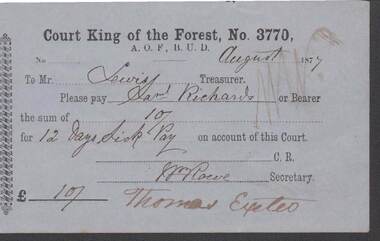 Court King of the Forest, No. 3770,
A. O. F., B. U. D.
No August 1877
To Mr. Lewis Treasurer.
Please pay Saml Richards or Bearer
the sum of 10/
for 12 Days Sick Pay on account of this Court.
C. R.
Wm Rowe Secretary.
£ 10/ Thomas